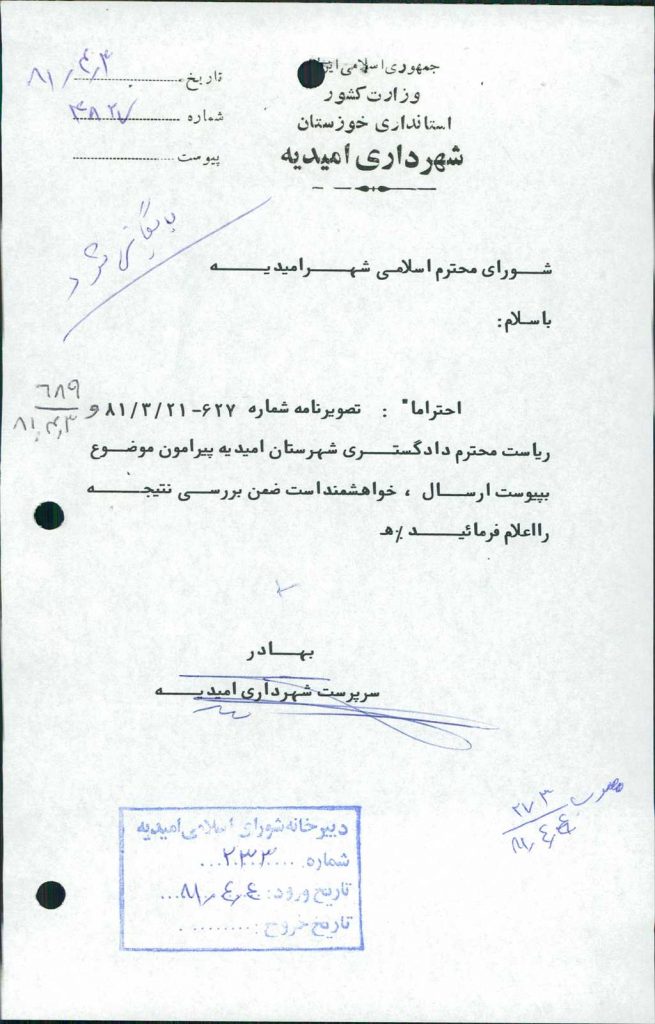 جمهوری اسلامی ایران
وزارت کشور
استانداری خوزستان
شهرداری امیدیه
تاریخ ۸۱/۴/۳
شماره ۴۸۲۷
پیوست
بایگانی شود
شورای محترم اسلامی شهر امیدیه
باسلام:
احتراما" : تصویرنامه شماره ۶۲۷-۸۱/۳/۲۱ و
۶۸۹
۸۱/۴/۳
ریاست محترم دادگستری شهرستان امیدیه پیرامون موضوع
بپیوست ارسال ، خواهشمنداست ضمن بررسی نتیجه
رااعلام فرمائید ./ه
بهادر
سرپرست شهرداری امیدیه
۲۷۳
۸۱/۴/۴
دبیرخانه شورای اسلامی امیدیه
شماره ۲۳۳
تاریخ ورود: ۸۱/۴/۴
تاریخ خروج: